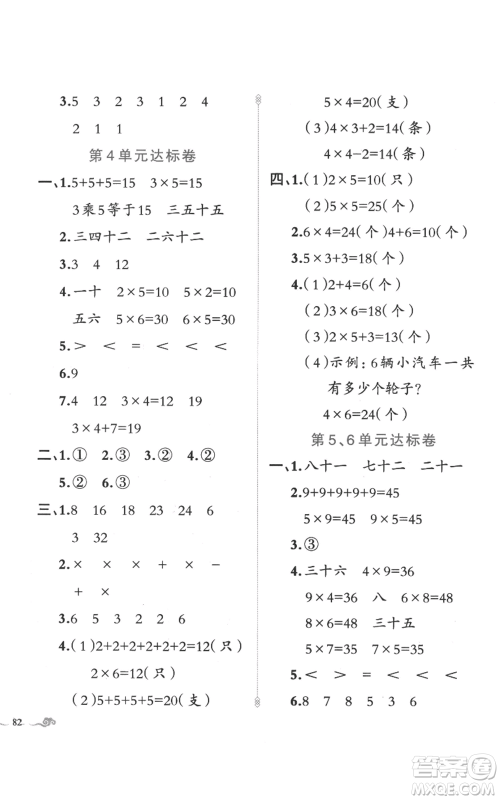 3.5 3 2 3 1 2 4
2 1 1
第4单元达标卷
一、1.5+5+5=15 3×5=15
3乘5等于15 三五十五
2.三四十二 二六十二
3.3 4 12
4.一十 2×5=10
五六 5×6=30 6×5=30
5.> < = < <
6.9
7.4 3 3×4=12
3×4+7=19
二、1.① 2.③ 3.② 4.②
5.② 6.③
三、1.8 16 18 23 24 6
3 32
2.× × × + −
+ ×
3.6 5 3 2 2
4.(1)2+2+2+2+2+2=12(只)
2×6=12(只)
(2)5+5+5+5=20(支)
82
5×4=20(支)
(3)4×3+2=14(条)
4×4-2=14(条)
四、1.(1)2×5=10(只)
(2)5×5=25(个)
2.6×4=24(个) 4+6=10(个)
3.5×3+3=18(个)
4.(1)2+4=6(个)
(2)3×6=18(个)
(3)2×5+3=13(个)
(4)示例:6辆小汽车一共
有多少个轮子?
4×6=24(个)
第5、6单元达标卷
一、1.八十一 七十二 二十一
2.9+9+9+9+9=45
9×5=45 5×9=45
3.③
4.三十六 4×9=36
9×4=36 八 6×8=48
8×6=48 三十五
5×7=35 7×5=35
5.< < > = >
6.8 7 8 5 4 8
答案圈
MXQE.COM